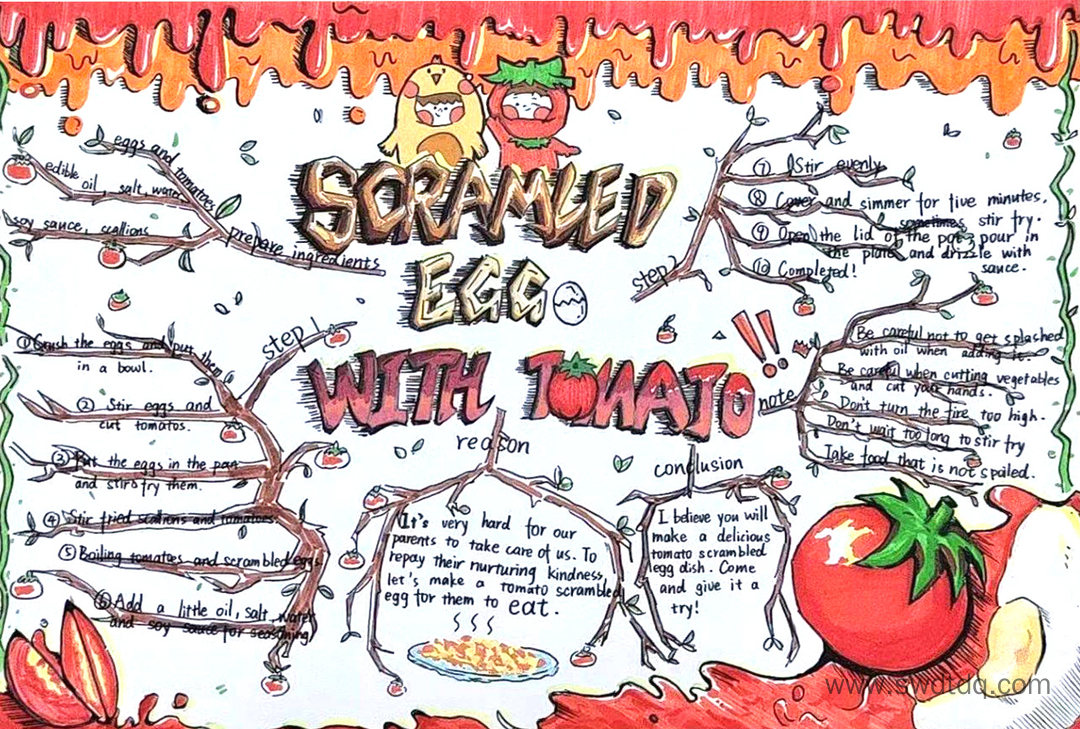 SCRAMLED
EGG
WITH TOMATO
eggs and tomatoes
edible oil, salt, water
soy sauce, scallions
prepare ingredients
step 1
① Crush the eggs and put them
in a bowl.
② Stir eggs and
cut tomatos.
③ Put the eggs in the pan
and stir fry them.
④ Stir fried scallions and tomatoes.
⑤ Boiling tomatoes and scrambled eggs.
⑥ Add a little oil, salt, water
and soy sauce for seasoning
step
⑦ Stir evenly
⑧ Cover and simmer for five minutes,
sometimes stir fry.
⑨ Open the lid of the pot, pour in
the plate and drizzle with
sauce.
⑩ Completed!
note
Be careful not to get splashed
with oil when adding it.
Be careful when cutting vegetables
and cut your hands.
Don't turn the fire too high.
Don't wait too long to stir fry
Take food that is not spoiled.
reason
It's very hard for our
parents to take care of us. To
repay their nurturing kindness,
let's make a tomato scrambled
egg for them to eat.
conclusion
I believe you will
make a delicious
tomato scrambled
egg dish. Come
and give it a
try!
www.swdtdq.com